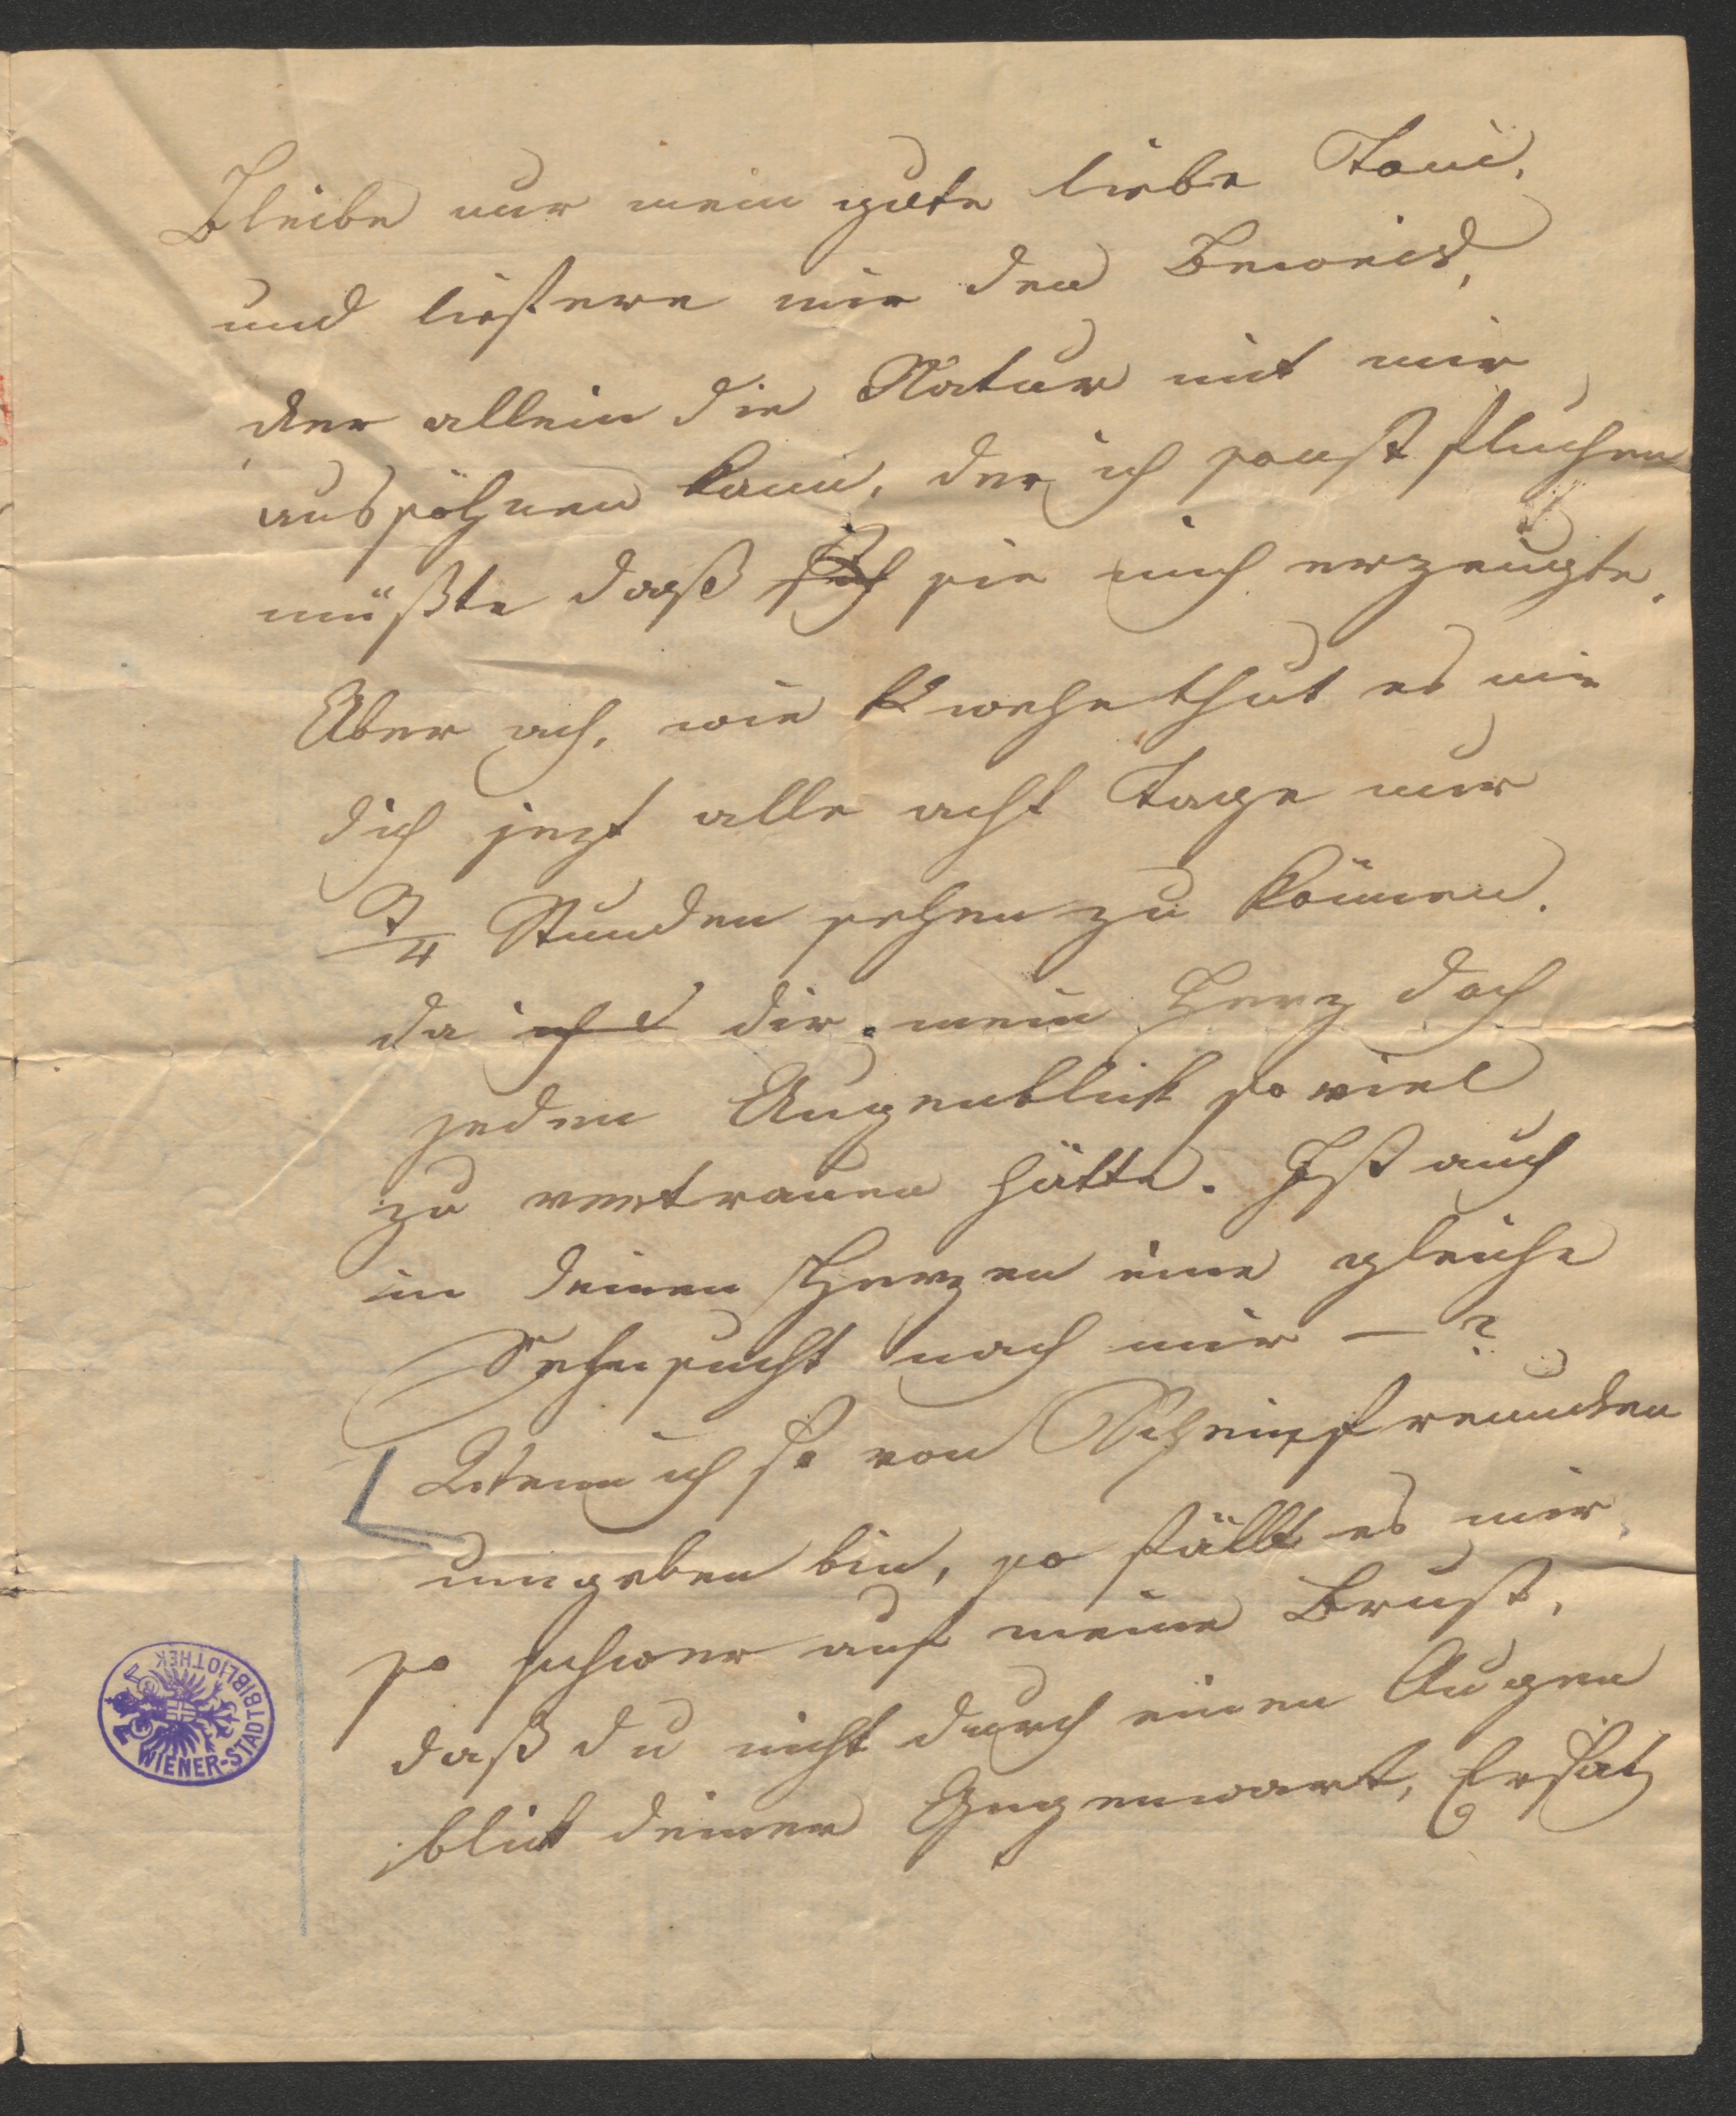 Bleibe nur mein gute liebe Toni,
und liefere mir den Beweis,
der allein die Natur mit mir
aussöhnen kann, der ich sonst fluchen
müßte daß sie mich erzeugte.
Aber ach, wie wehe thut es mir
dich jezt alle acht Tage nur
3/4 Stunden sehen zu können.
da ich dir mein Herz doch
jeden Augenblick so viel
zu vertrauen hätte. Ist auch
in deinen Herzen eine gleiche
Sehnsucht nach mir — ?
Wenn ich so von Scheinfreunden
umgeben bin, so fällt es mir
so schwer auf meine Brust,
daß du nicht durch einen Augen
blick deiner Gegenwart, Ersatz
WIENER-STADTBIBLIOTHEK